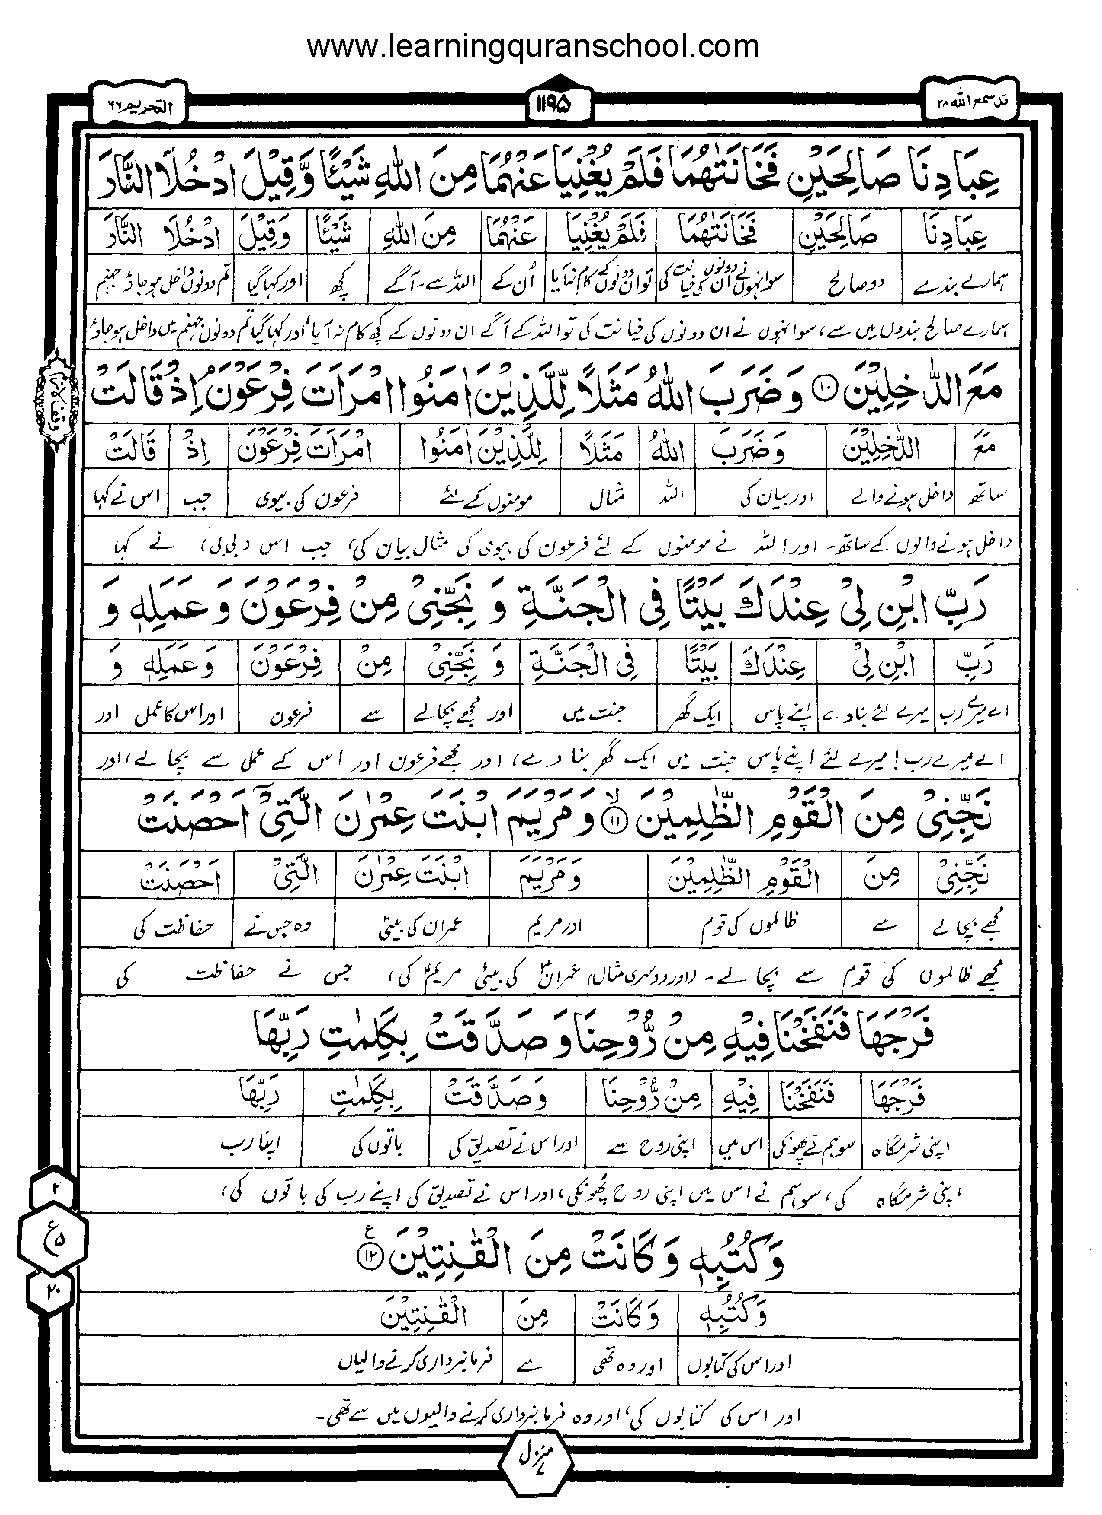 www.learningquranschool.com
قد سمع الله ۲۸
۱۱۹۵
التحريم ۶۶
عِبَادِنَا صَالِحَيْنِ فَخَانَتٰهُمَا فَلَمْ يُغْنِيَا عَنْهُمَا مِنَ اللّٰهِ شَيْـًٔا وَّقِيْلَ ادْخُلَا النَّارَ
عِبَادِنَا صَالِحَيْنِ فَخَانَتٰهُمَا فَلَمْ يُغْنِيَا عَنْهُمَا مِنَ اللّٰهِ شَيْـًٔا وَّقِيْلَ ادْخُلَا النَّارَ
ہمارے بندے دو صالح سو انہوں نے ان دونوں کی خیانت کی تو ان دونوں کے کام نہ آیا اُن کے اللہ سے۔آگے کچھ اور کہا گیا تم دونوں داخل ہو جاؤ جہنم
ہمارے صالح بندوں میں سے، سو انہوں نے ان دونوں کی خیانت کی تو اللہ کے آگے ان دونوں کے کچھ کام نہ آیا، اور کہا گیا تم دونوں جہنم میں داخل ہو جاؤ
مَعَ الدّٰخِلِيْنَ ۱۰ وَضَرَبَ اللّٰهُ مَثَلًا لِّلَّذِيْنَ اٰمَنُوا امْرَاَتَ فِرْعَوْنَ ۘ اِذْ قَالَتْ
مَعَ الدّٰخِلِيْنَ وَضَرَبَ اللّٰهُ مَثَلًا لِّلَّذِيْنَ اٰمَنُوا امْرَاَتَ فِرْعَوْنَ اِذْ قَالَتْ
ساتھ داخل ہونے والے اور بیان کی اللہ مثال مومنوں کے لئے فرعون کی بیوی جب اس نے کہا
داخل ہونے والوں کے ساتھ۔ اور اللہ نے مومنوں کے لئے فرعون کی بیوی کی مثال بیان کی، جب اس (بی بی) نے کہا
رَبِّ ابْنِ لِيْ عِنْدَكَ بَيْتًا فِي الْجَنَّةِ وَ نَجِّنِيْ مِنْ فِرْعَوْنَ وَ عَمَلِهٖ وَ
رَبِّ ابْنِ لِيْ عِنْدَكَ بَيْتًا فِي الْجَنَّةِ وَ نَجِّنِيْ مِنْ فِرْعَوْنَ وَ عَمَلِهٖ وَ
اے میرے رب میرے لئے بنا دے اپنے پاس ایک گھر جنت میں اور مجھے بچا لے سے فرعون اور اس کا عمل اور
اے میرے رب! میرے لئے اپنے پاس جنت میں ایک گھر بنا دے، اور مجھے فرعون اور اس کے عمل سے بچا لے، اور
نَجِّنِيْ مِنَ الْقَوْمِ الظّٰلِمِيْنَ ۙ ۱۱ وَ مَرْيَمَ ابْنَتَ عِمْرٰنَ الَّتِيْٓ اَحْصَنَتْ
نَجِّنِيْ مِنَ الْقَوْمِ الظّٰلِمِيْنَ وَ مَرْيَمَ ابْنَتَ عِمْرٰنَ الَّتِيْ اَحْصَنَتْ
مجھے بچا لے سے ظالموں کی قوم اور مریم عمران کی بیٹی وہ جس نے حفاظت کی
مجھے ظالموں کی قوم سے بچا لے۔ (اور دوسری مثال) عمران کی بیٹی مریم کی، جس نے حفاظت کی
فَرْجَهَا فَنَفَخْنَا فِيْهِ مِنْ رُّوْحِنَا وَ صَدَّقَتْ بِكَلِمٰتِ رَبِّهَا
فَرْجَهَا فَنَفَخْنَا فِيْهِ مِنْ رُّوْحِنَا وَ صَدَّقَتْ بِكَلِمٰتِ رَبِّهَا
اپنی شرمگاہ سو ہم نے پھونکی اس میں اپنی روح سے اور اس نے تصدیق کی باتوں کی اپنا رب
اپنی شرمگاہ کی، سو ہم نے اس میں اپنی روح پھونکی، اور اس نے تصدیق کی اپنے رب کی باتوں کی،
وَ كُتُبِهٖ وَ كَانَتْ مِنَ الْقٰنِتِيْنَ ۱۲ ع
وَ كُتُبِهٖ وَ كَانَتْ مِنَ الْقٰنِتِيْنَ
اور اس کی کتابوں اور وہ تھی سے فرمانبرداری کرنے والیاں
اور اس کی کتابوں کی، اور وہ فرمانبرداری کرنے والیوں میں سے تھی۔
۲
ع ۵
۲۰
منزل ۷